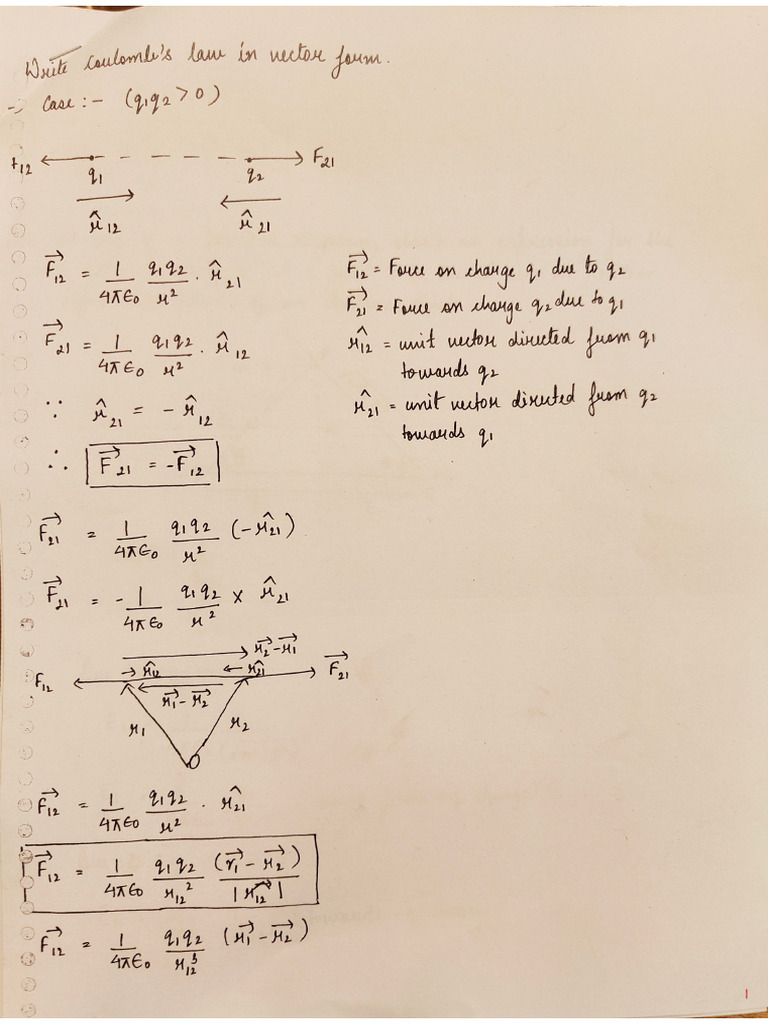 Write Coulomb's law in vector form.
→ Case :- (q₁q₂ > 0)
F₁₂ q₁ q₂ F₂₁
r̂₁₂ r̂₂₁
F⃗₁₂ = 1/4πϵ₀ q₁q₂/r² . r̂₂₁
F⃗₂₁ = 1/4πϵ₀ q₁q₂/r² . r̂₁₂
∵ r̂₂₁ = - r̂₁₂
∴ F⃗₂₁ = -F⃗₁₂
F⃗₁₂ = Force on charge q₁ due to q₂
F⃗₂₁ = Force on charge q₂ due to q₁
r̂₁₂ = unit vector directed from q₁
towards q₂
r̂₂₁ = unit vector directed from q₂
towards q₁
F⃗₂₁ = 1/4πϵ₀ q₁q₂/r² (-r̂₂₁)
F⃗₂₁ = -1/4πϵ₀ q₁q₂/r² × r̂₂₁
r⃗₂-r⃗₁
F₁₂ → r̂₁₂ ← r̂₂₁ F⃗₂₁
r⃗₁-r⃗₂
r₁ r₂
O
F⃗₁₂ = 1/4πϵ₀ q₁q₂/r² . r̂₂₁
F⃗₁₂ = 1/4πϵ₀ q₁q₂/r₁₂² (r⃗₁ - r⃗₂)/|r⃗₁₂|
F⃗₁₂ = 1/4πϵ₀ q₁q₂/r₁₂³ (r⃗₁ - r⃗₂)
1